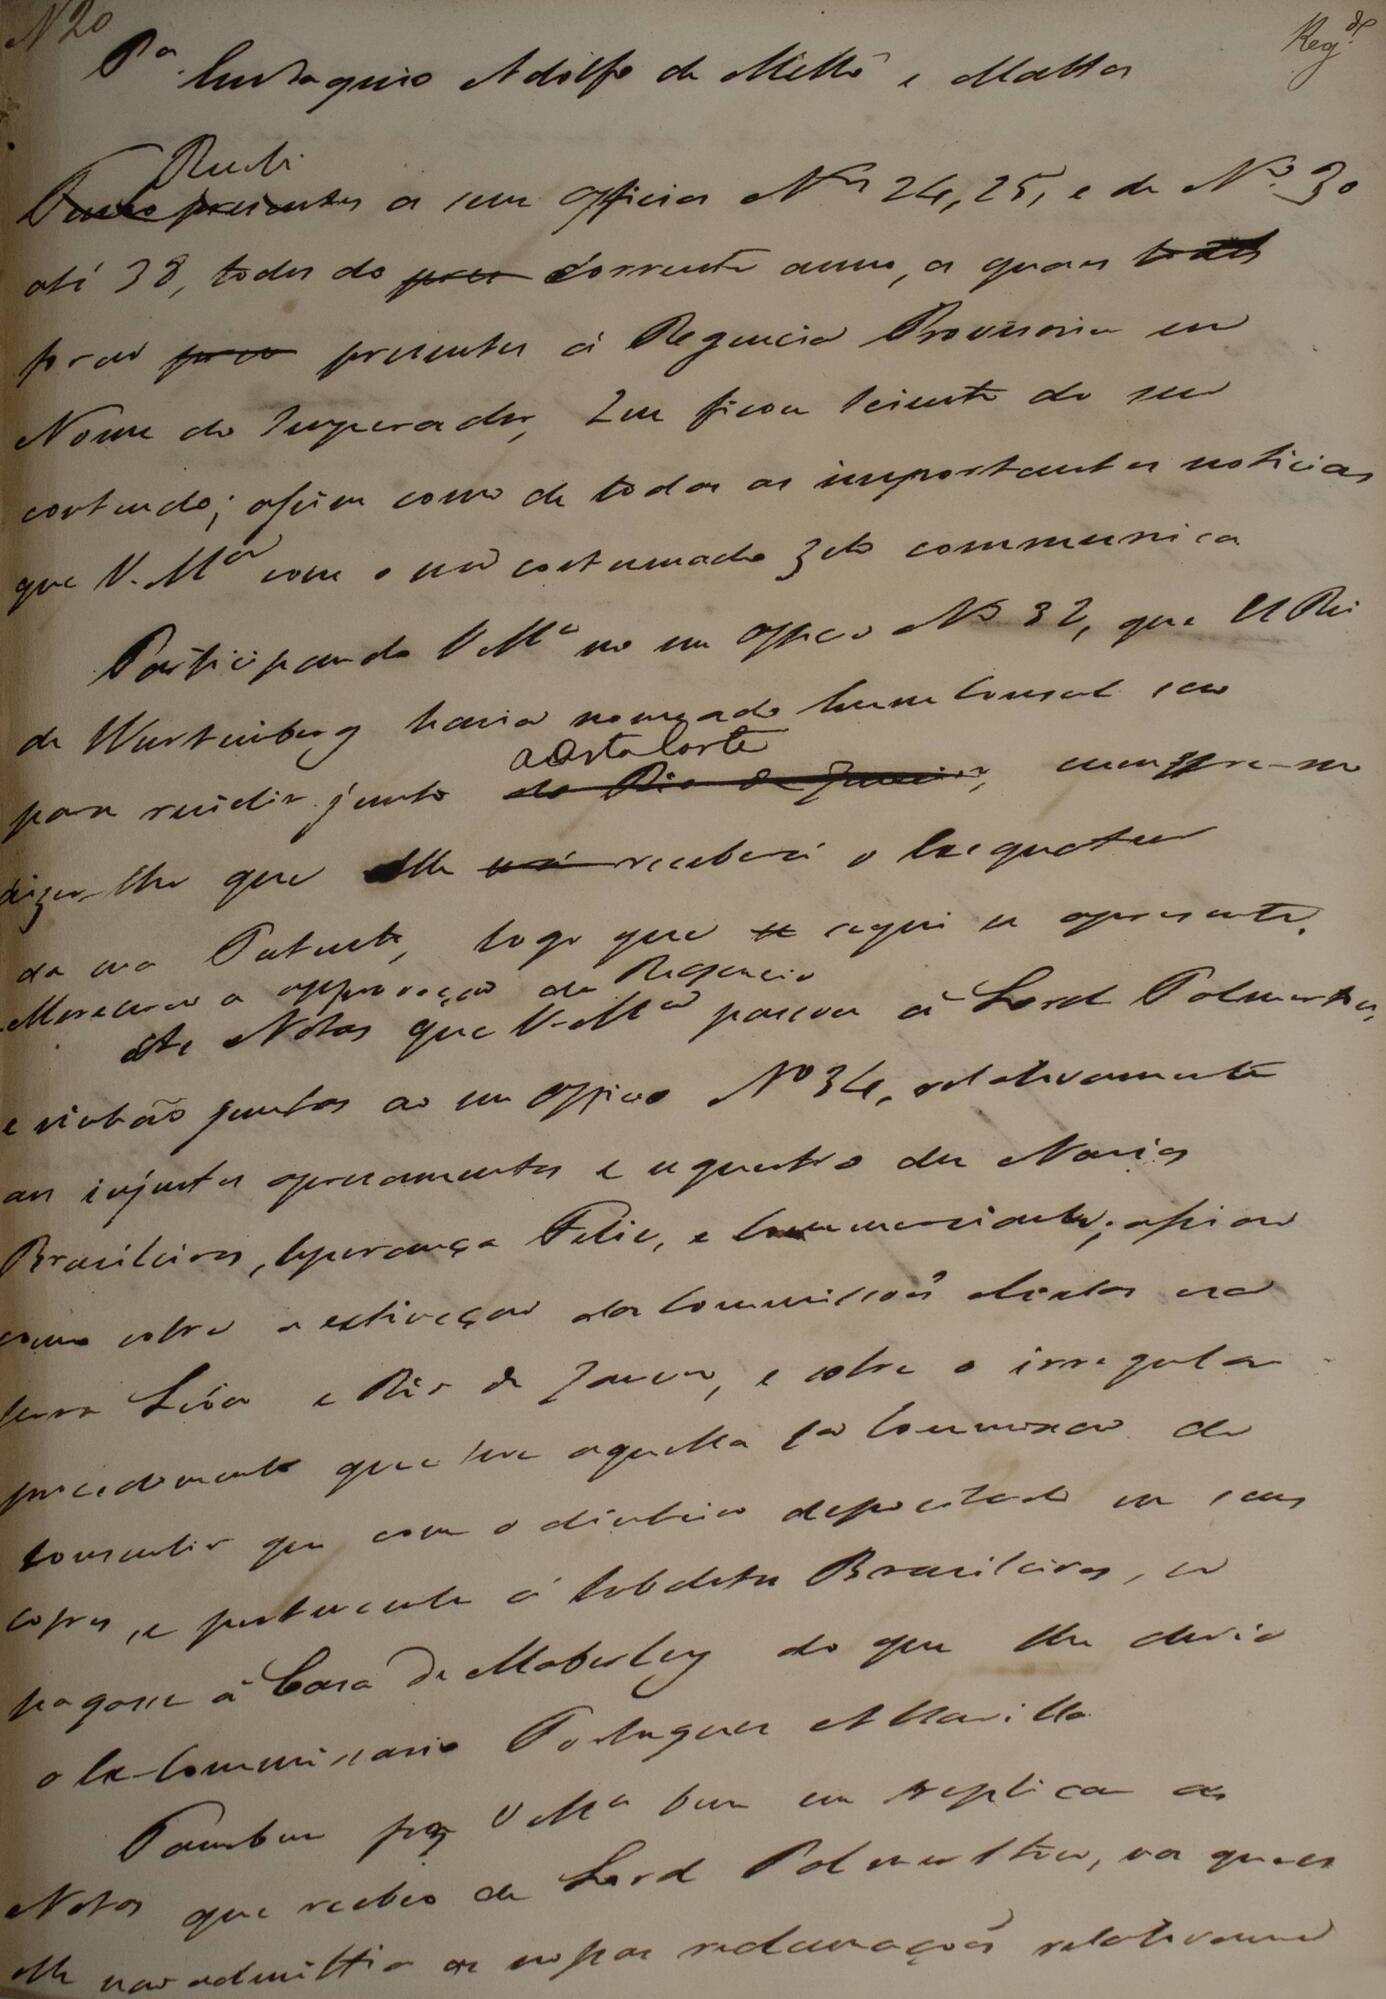 N 20
Reg.de
Pa. Eustaquio Adolfo de Mello e Mattos
Recebi
Tenho presentes os seus officios Nos 24, 25, e de No. 30
até 38, todos do corrente anno, os quaes todos
forão presentes á Regencia Provisoria em
Nome do Imperador, Que ficou sciente do seu
contendo; assim como de todas as importantes noticias
que V. Mce com o seu costumado zelo communica
Participando V Mce no seu officio No 32, que El Rei
de Wurtemberg havia nomeado hum Consul seu
a esta Corte
para residir junto do Rio de Janeiro, cumpre-me
dizer-lhe que elle receberá o Exequatur
da sua Patente, logo que se aqui se apresente.
Merecerão a approvação da Regencia
as Notas que V. Mce passou á Lord Palmerston,
e vinhão juntas ao seu officio No 34, relativamente
aos injustos apresamentos e sequestro dos Navios
Brasileiros, Esperança Feliz, e Commerciante; assim
como sobre a extincção das Commissoẽs mixtas em
Serra Leôa e Rio de Janeiro, e sobre o irregular
procedimento que teve aquella 1a Commissão de
consentir que com o dinheiro depositado em seus
cofres, e pertencente á Subditos Brasileiros, se
pagasse á Casa de Maberley do que lhe devia
o Ex-Commissario Portuguez Altavilla
Tambem fez V Mce bem em replicar as
Notas que recebeo de Lord Palmerston, nas quaes
elle não admittia as nossas reclamaçoẽs relativame